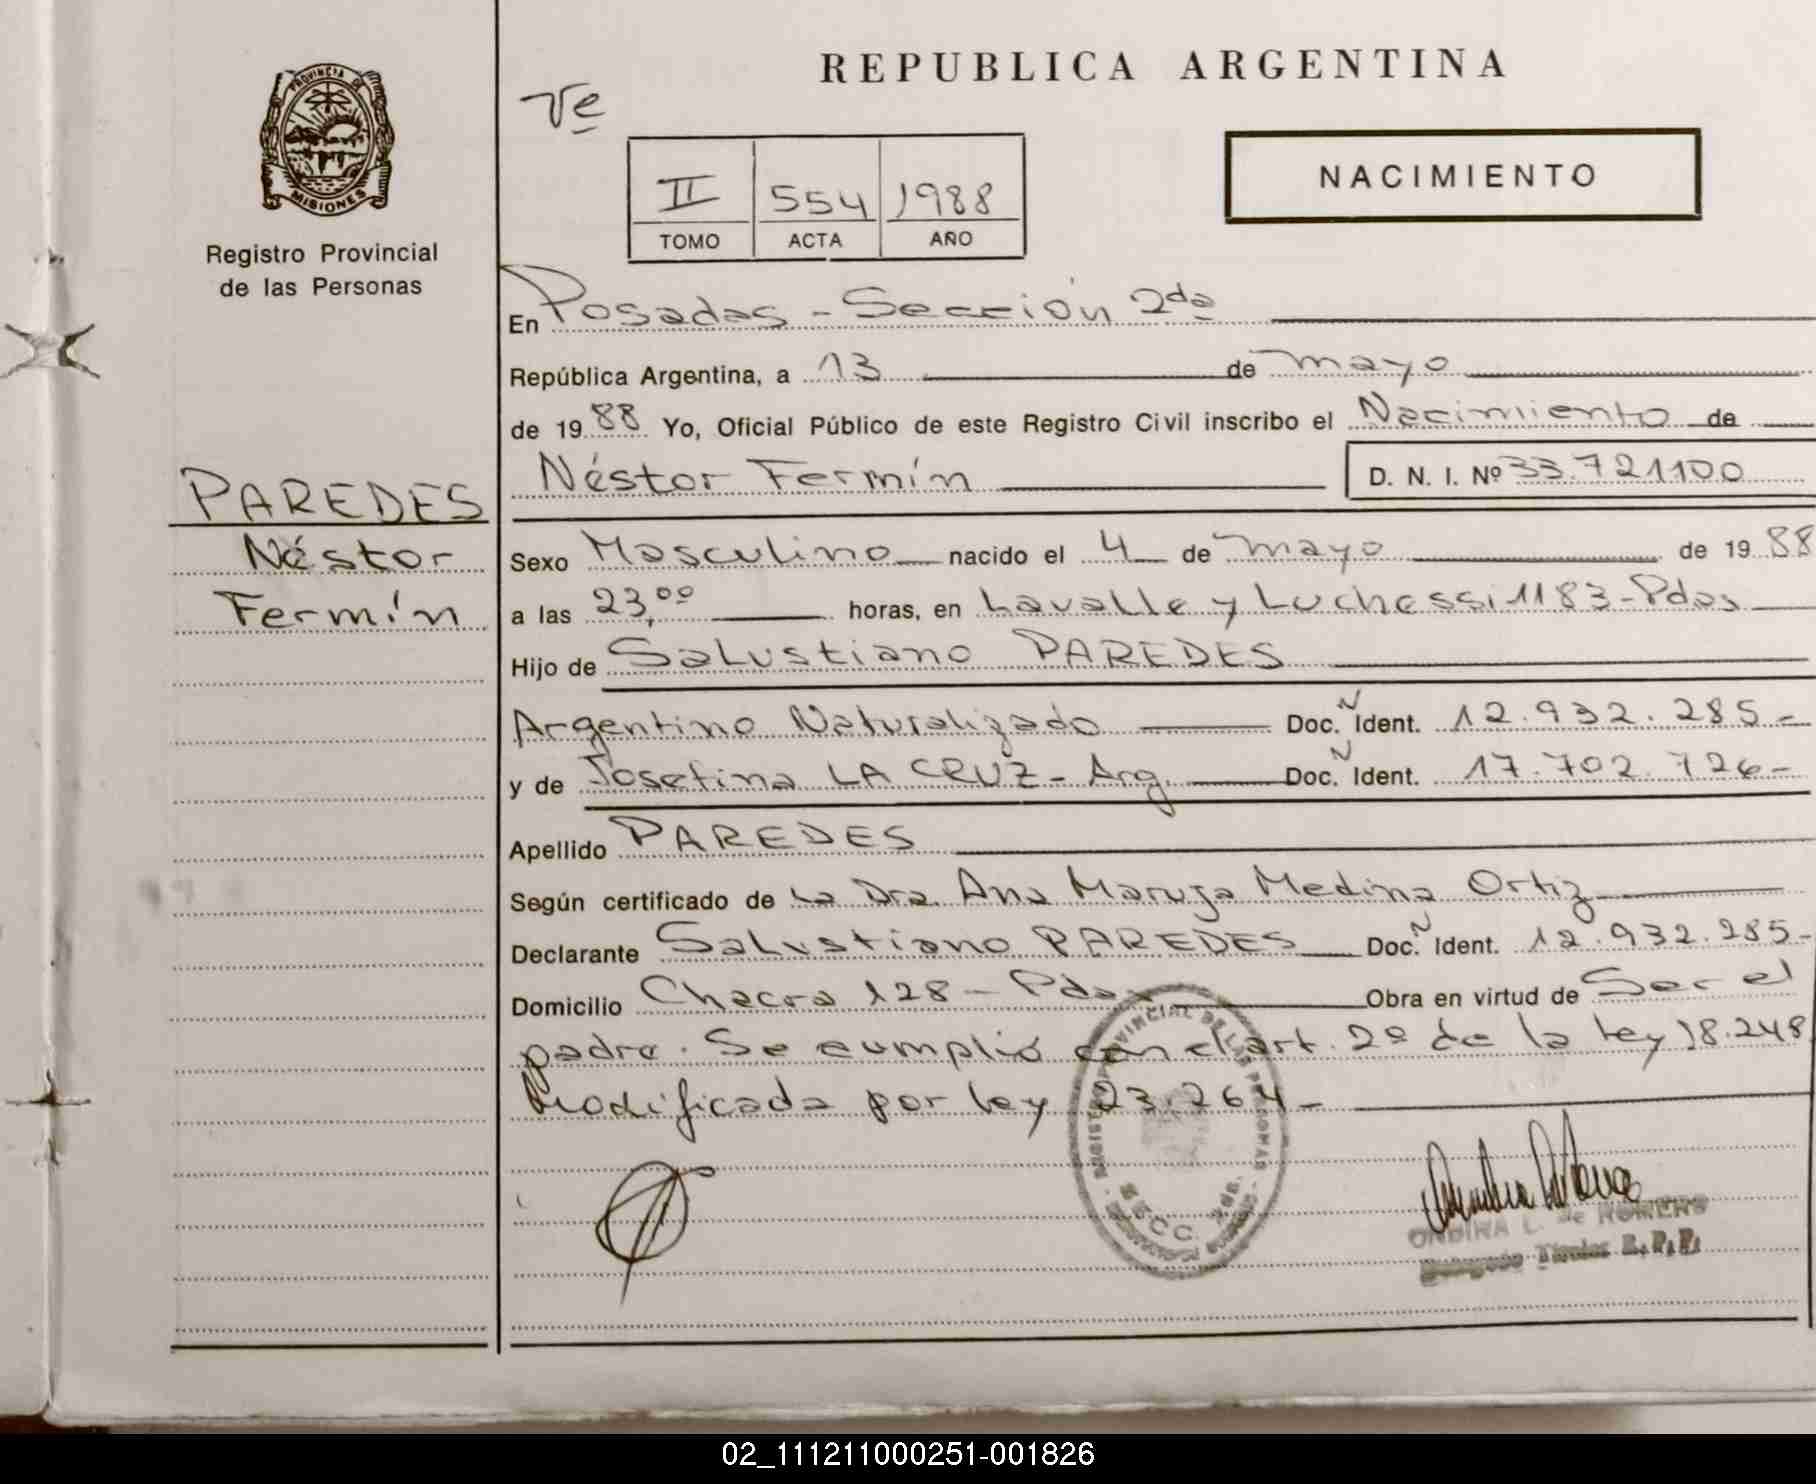 REPUBLICA ARGENTINA
PROVINCIA DE
MISIONES
Registro Provincial
de las Personas
Ve
NACIMIENTO
II 554 1988
TOMO ACTA AÑO
En Posadas - Sección 2da
República Argentina, a 13 de mayo
de 1988 Yo, Oficial Público de este Registro Civil inscribo el Nacimiento de
Néstor Fermín D. N. I. Nº 33.721100
PAREDES
Néstor
Fermín
Sexo Masculino nacido el 4 de mayo de 1988
a las 23,00 horas, en Lavalle y Luchessi 1183-Pdas
Hijo de Salustiano PAREDES
Argentino Naturalizado Doc. Ñ Ident. 12.932.285-
y de Josefina LA CRUZ - Arg. Doc. Ñ Ident. 17.702.726-
Apellido PAREDES
Según certificado de la Dra. Ana Maruja Medina Ortiz
Declarante Salustiano PAREDES Doc. Ñ Ident. 12.932.285-
Domicilio Chacra 128 - Pdas Obra en virtud de Ser el
padre. Se cumplió con el art. 2º de la ley 18.248
Modificada por ley 23.264-
ONDINA L. de ROMERO
Titular R. P. P.
02_111211000251-001826